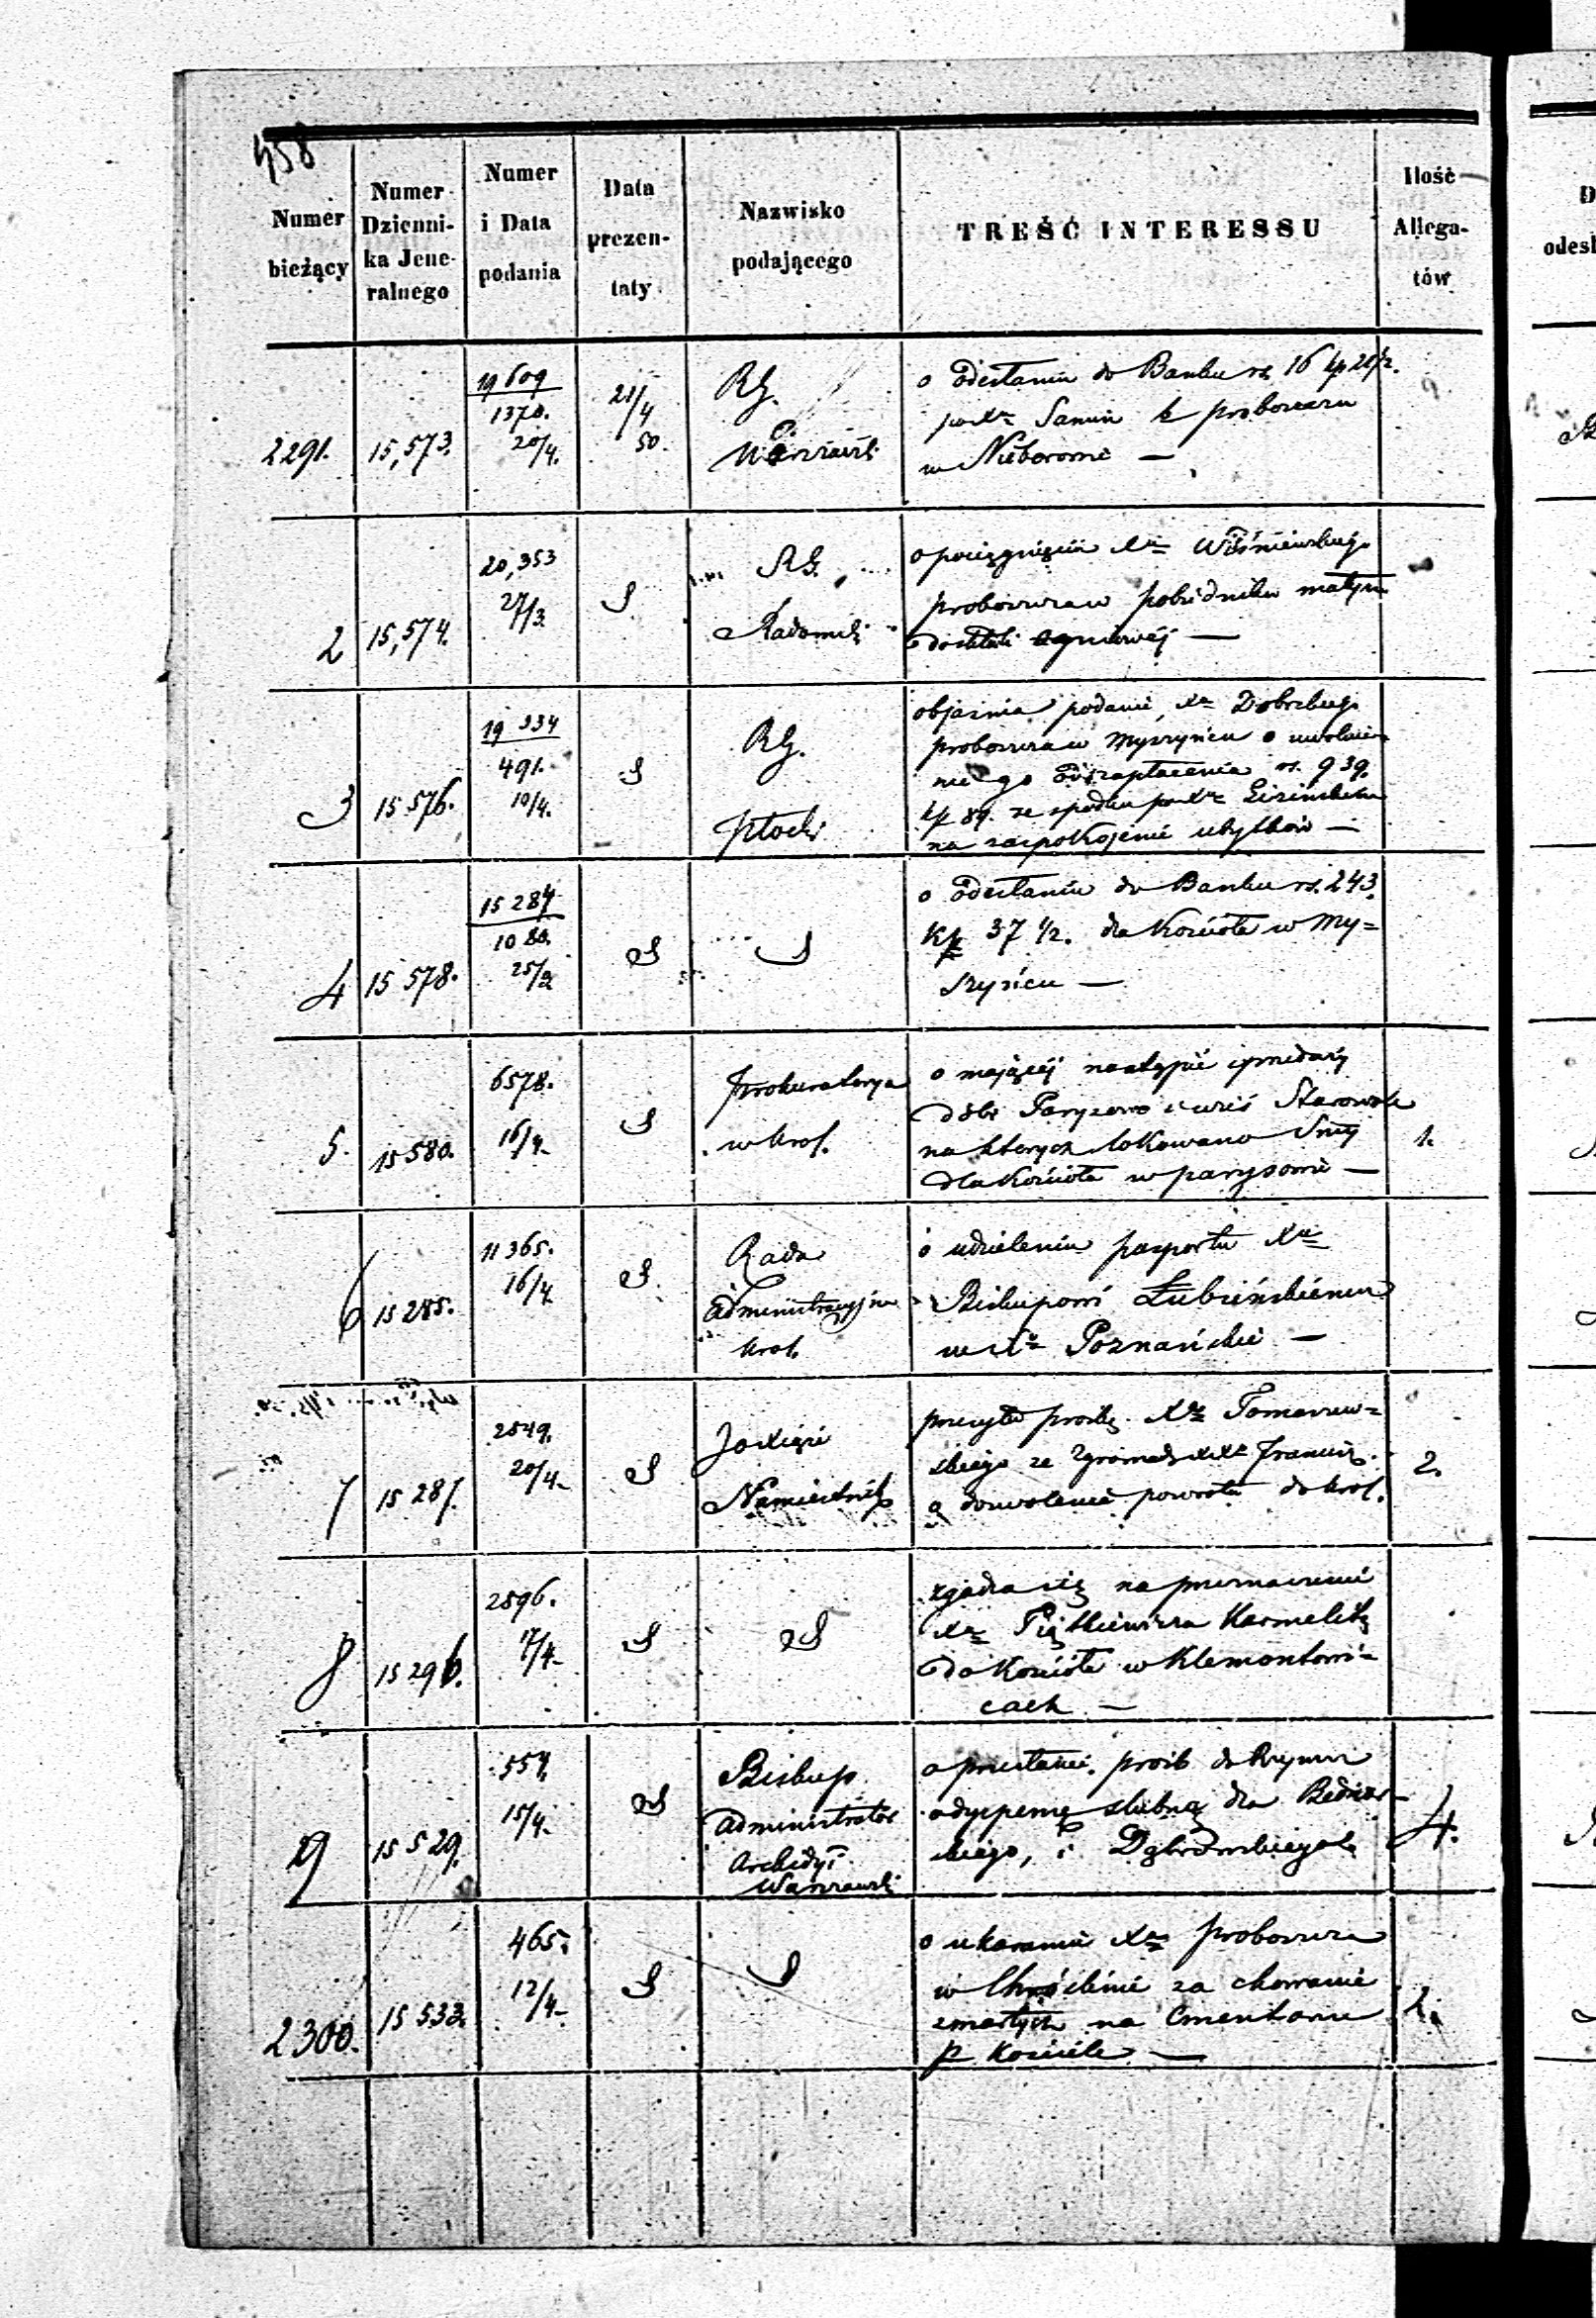 458
Numer bieżący
Numer Dzienni-ka Jene-ralnego
Numer i Data podania
Data prezen-taty
Nazwisko podającego
TREŚĆ INTERESSU
Ilość Allega-tów
2291. 15,573. 19 609 1370. 20/4. 21/4 50. RG. Warszaws.
o odesłaniu do Banku rs. 16 kp 21 1/2.
po Xu Samin b proboszczu
w Nieborowie —
2 15,574. 20,353 27/3. S. RG. Radomski
o pociągnięciu Xa Wiśniewskiego
proboszcza w pobiedniku małym
do składki ogniowéj —
3 15 576. 19 334 491. 10/4. S RG. Płocki
objaśnia podanie, Xa Dobrskiego
proboszcza w Myszyńcu o uwolnie-
nie go od zapłacenia rs. 939.
kp 84. ze spadku po Xu
na zaspokojenie ubytków —
4 15 578. 15 284 1080. 25/2 S S
o odesłaniu do Banku rs. 243.
Kp 37 1/2. dla Kościoła w My=
szyńcu —
5. 15 580. 6578. 16/4. S Prokuratorya w Król.
o mającéj nastąpić sprzedaży
dóbr Paryzewo i wsi Starowola
na których lokowano Sumy
dla Kościoła w parysowie — 1.
6 15 285. 11 365. 16/4. S. Rada Administracyjna Król.
o udzieleniu paszportu Xu
Biskupowi Łubieńskiemu
w Xo Poznańskie —
7 15 287. 2549. 20/4. S Jo Xiąże Namiestnik
przesyła prośbę Xa Tomaszew=
skiego ze Zgromadz XXy Francisz.
o dozwolenie powrotu do Król. 2.
8 15 296. 2596. 17/4. S S
zgadza się na przeznaczenie
Xa Piątkiewicza Karmelitę
do Kościoła w Klementowi=
cach —
9 15 529. 557. 15/4. S Biskup Administrator Archidyi Warszawski
o przesłanie prośb do Rzymu
o dyspensę slubną dla Bednar-
skiego, i Dąbrowskiego 4.
2300. 15 533. 465. 12/4. S S
o ukaranie Xa proboszcza
w za chowanie
zmarłych na Cmentarzu
p Kościele — 2.
D
odesł